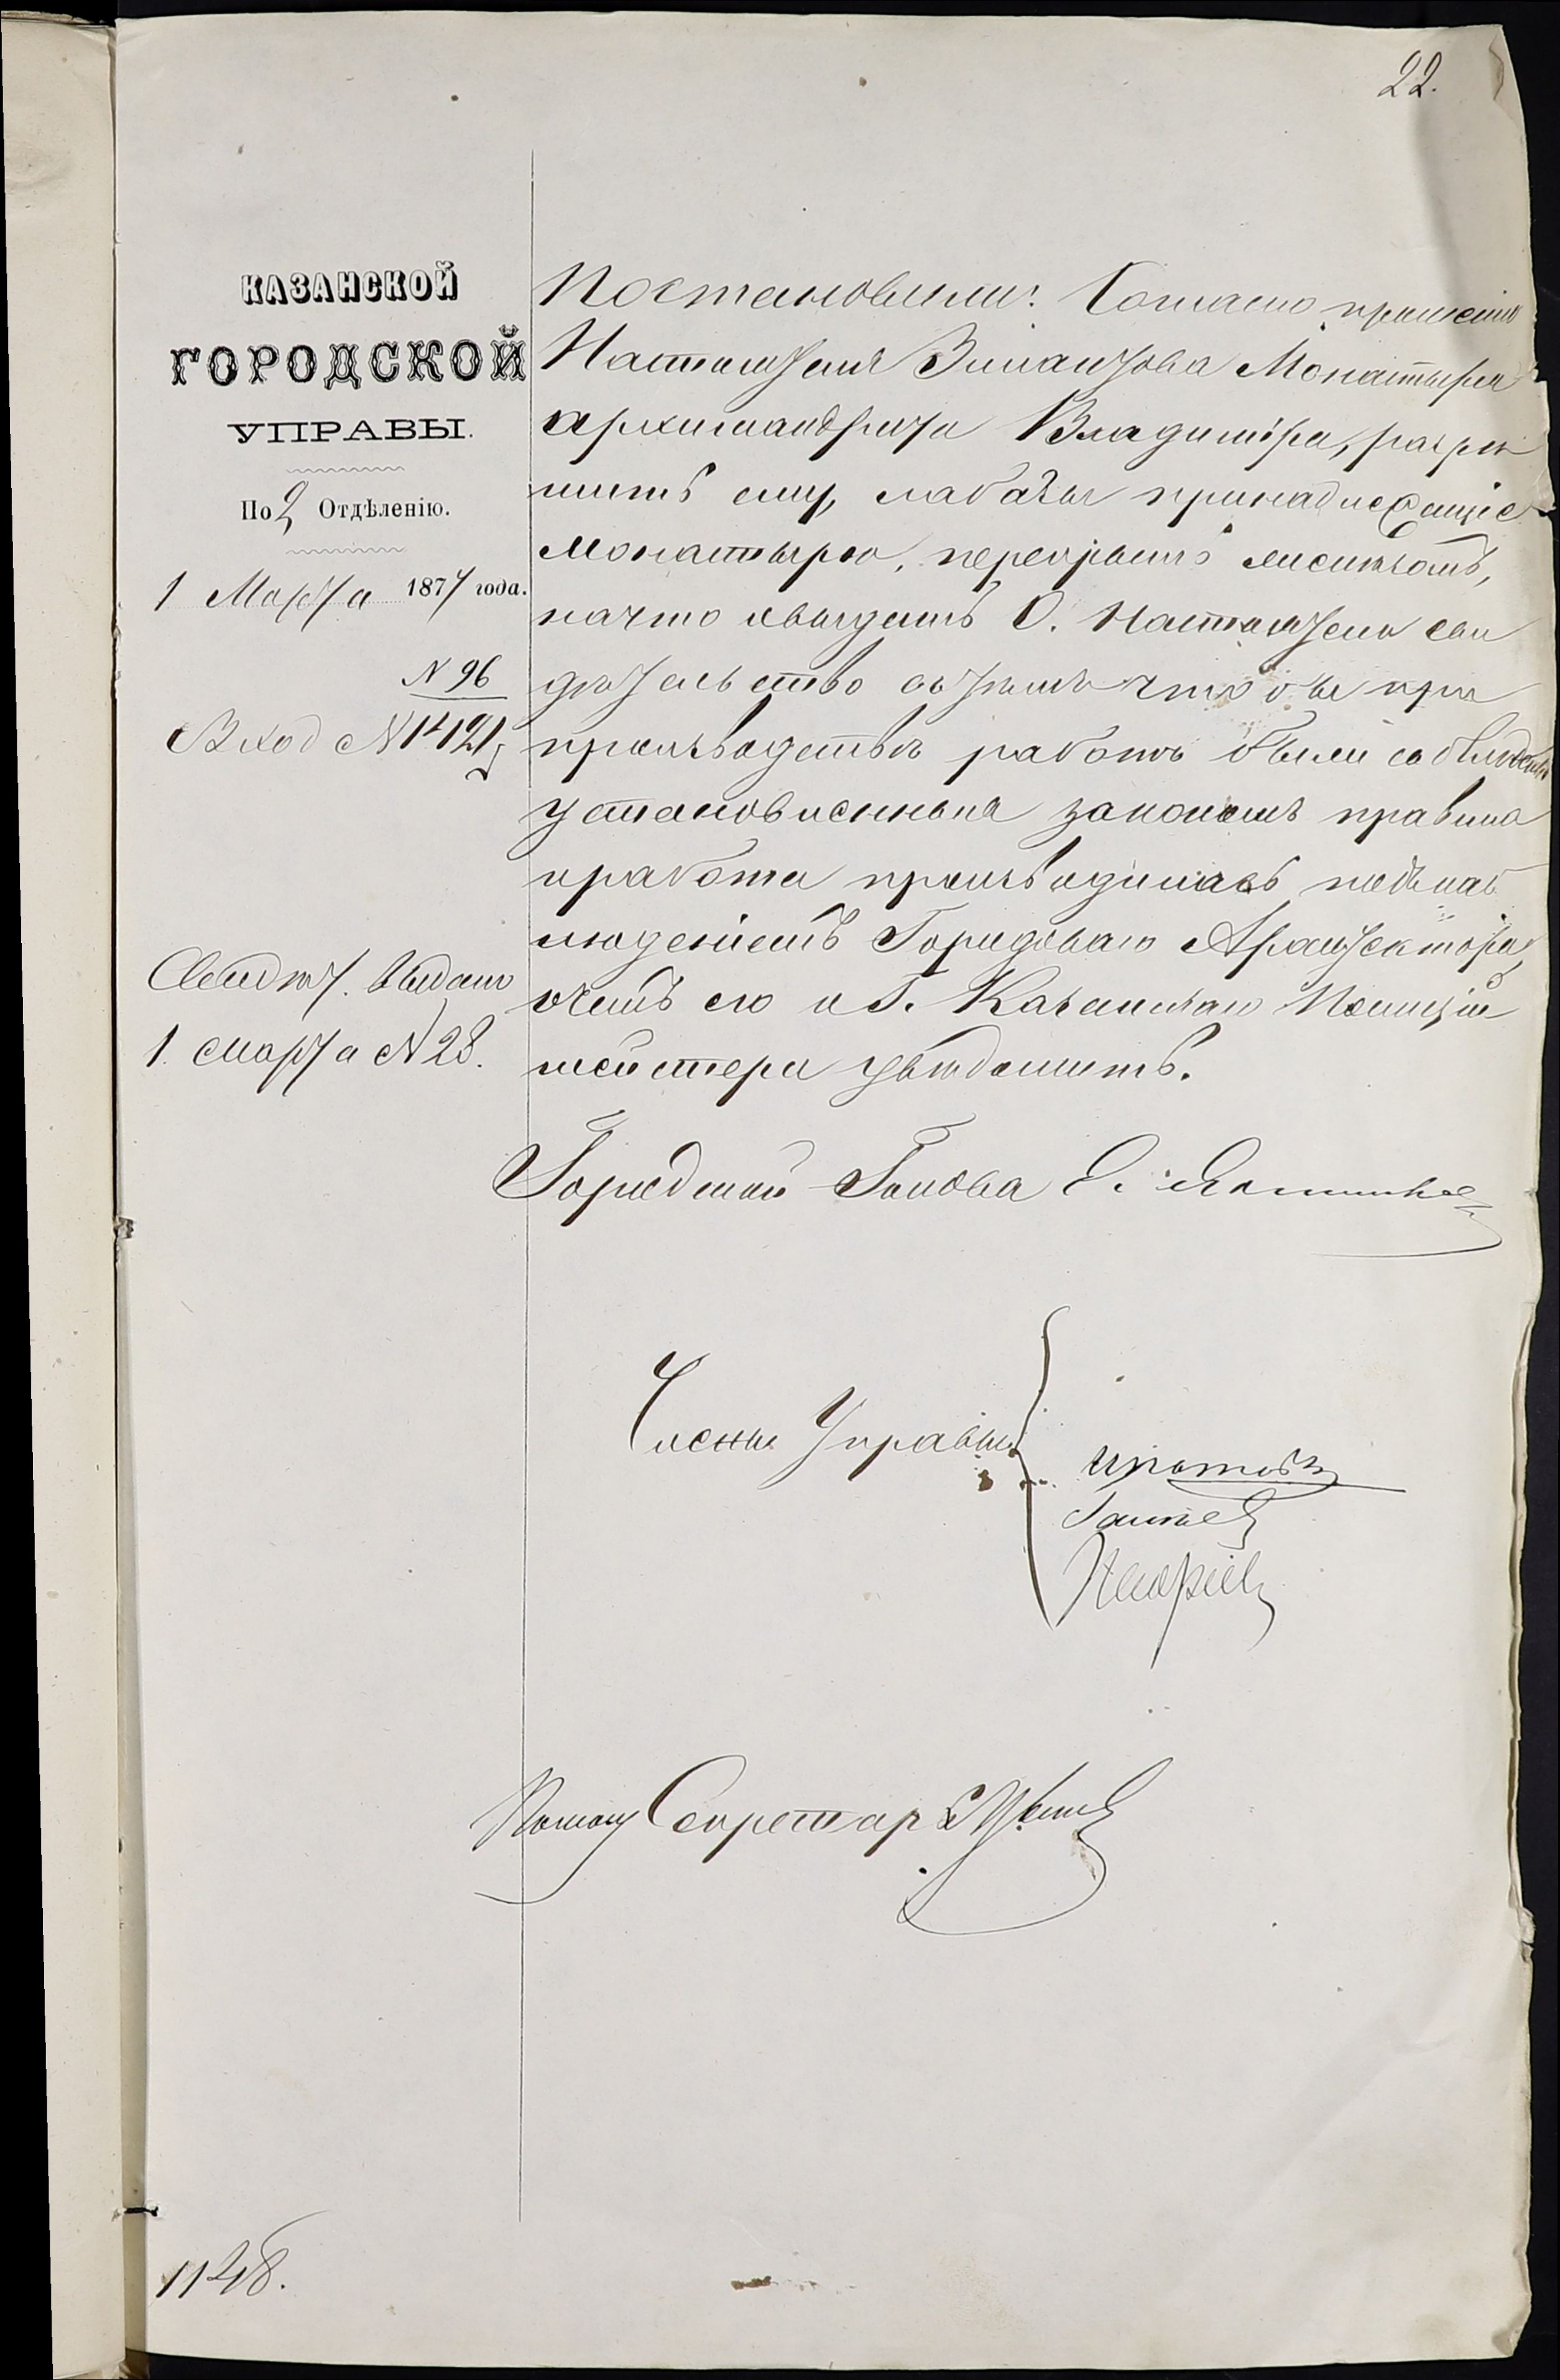 22.
КАЗАНСКОЙ
ГОРОДСКОЙ
УПРАВЫ.
По 2 Отдѣленію.
1 Марта 1877 года.
N 96
Вход N 1412
Свидѣт. выдано
1 марта N 28.
Постановили: Согласно прошенію
Настоятеля Зилантова Монастыря
архимандрита Владиміра, разрѣ
шить ему, лабазы принадлежащіе
монастырю, перекрыть
на что и выдать О. Настоятелю сви
дѣтельство съ тѣмъ чтобы при
производствѣ работъ были соблюдены
установленныя закономъ правила
и работа производилась подъ наб
люденіемъ Городоваго Архитектора,
о чемъ его и Г. Казанскаго Полицій
мейстера увѣдомить.
Городской Голова
Члены Управы
Помощ Секретаря
1148.